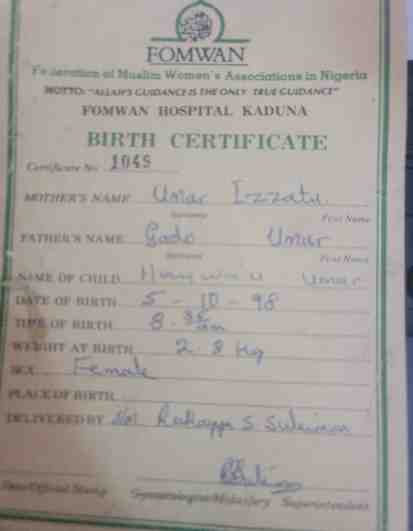 FOMWAN
Federation of Muslim Women's Associations in Nigeria
MOTTO: "ALLAH'S GUIDANCE IS THE ONLY TRUE GUIDANCE"
FOMWAN HOSPITAL KADUNA
BIRTH CERTIFICATE
Certificate No 1045
MOTHER'S NAME Umar Izzatu
Surname First Name
FATHER'S NAME Gado Umar
Surname First Name
NAME OF CHILD Umar
DATE OF BIRTH 5 - 10 - 98
TIME OF BIRTH 8. 35 am
WEIGHT AT BIRTH 2.8 kg
SEX Female
PLACE OF BIRTH
DELIVERED BY S Suleiman
Date/Official Stamp Gynaecologist/Midwifery Superintendent